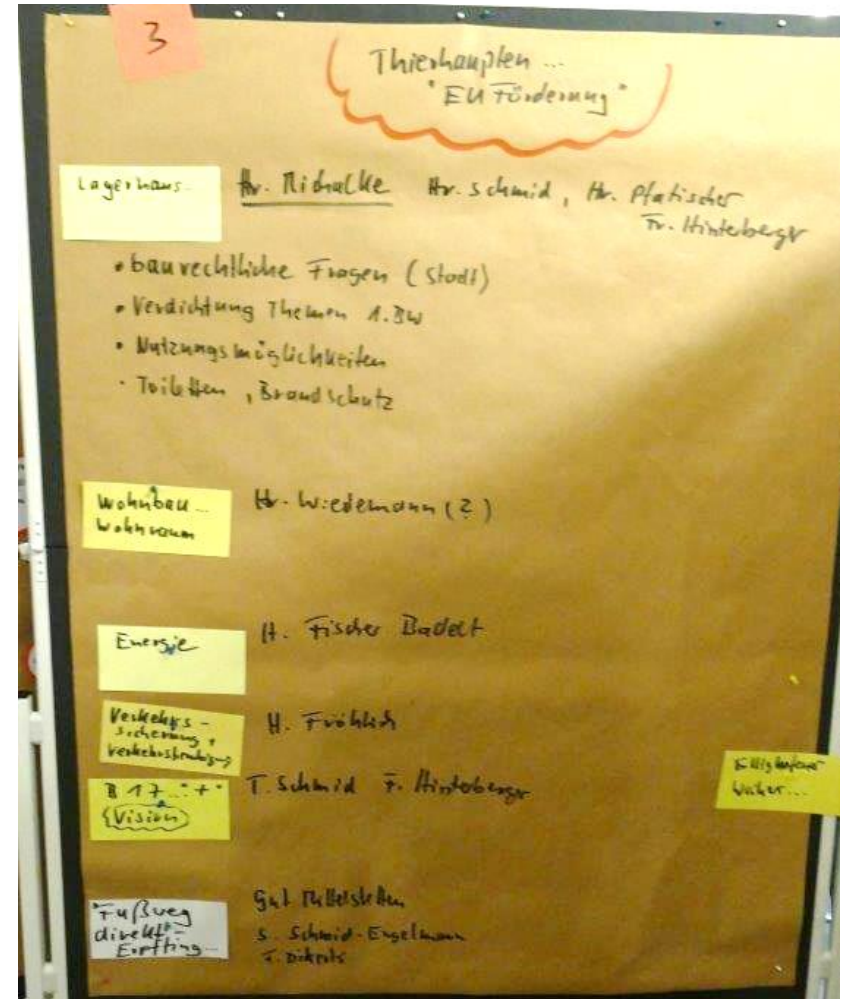 3
Thierhaupten ...
"EU Förderung"
Lagerhaus
Hr. Michalke Hr. Schmid, Hr. Pfatischer
Fr. Hinterberger
• baurechtliche Fragen (Stadt)
• Verdichtung Themen 1. BW
• Nutzungsmöglichkeiten
• Toiletten, Brandschutz
Wohnbau ...
Wohnraum
Hr. Wiedemann (?)
Energie
H. Fischer Badelt
Verkehrs-
sicherung +
Verkehrsberuhigung
H. Fröhlich
B 17 ... "+"
(Vision)
T. Schmid F. Hinterberger
Weiher...
Fußweg
direkt -
Erpfting...
Gut Mittelstetten
S. Schmid-Engelmann